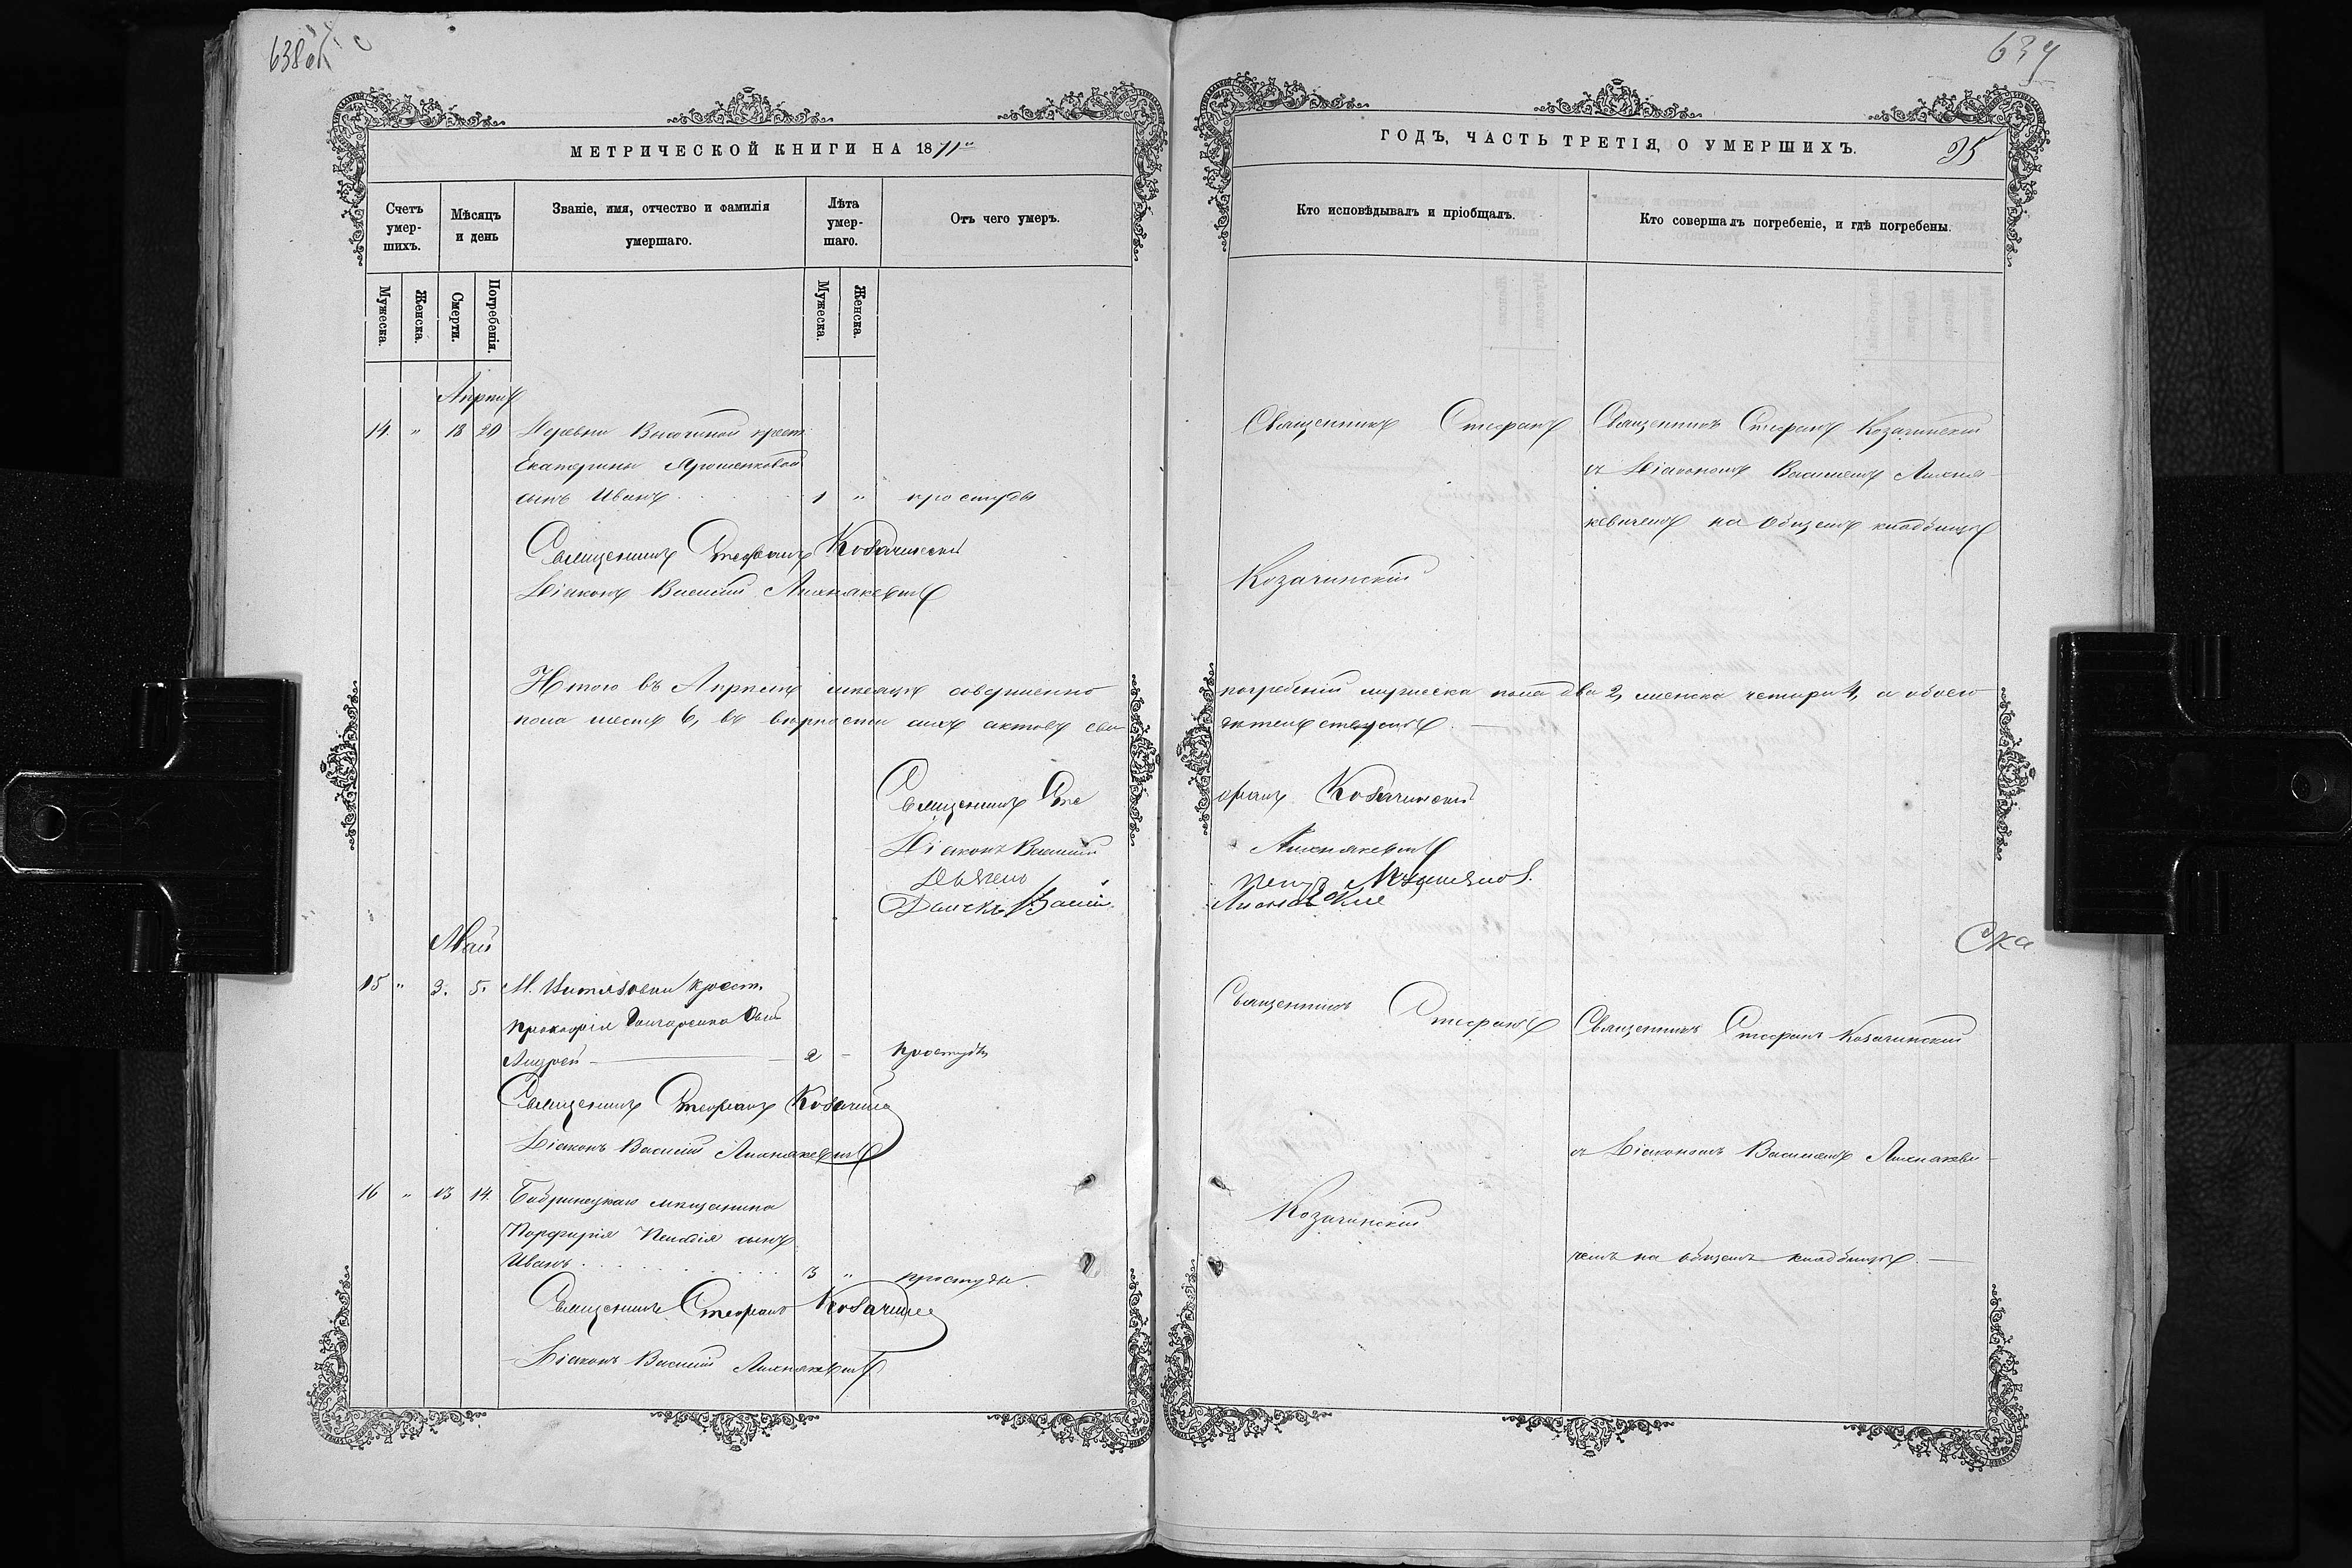 638об
МЕТРИЧЕСКОЙ КНИГИ НА 1871й
Счетъ умер-шихъ.
Мѣсяцъ и день
Званіе, имя, отчество и фамилія умершаго.
Лѣта умер-шаго.
Отъ чего умеръ.
Мужеска.
Женска.
Смерти.
Погребенія.
Мужеска.
Женска.
Апрѣль
14. " 18 20 Деревни Высочиной крест.
Екатерины Ярошенковой
сынъ Иванъ 1 " простуды
Священникъ Стефанъ Козачинскій
Діаконъ Василій Лихнякевичъ
Итого въ Апрѣлѣ мѣсяцѣ совершенно
пола шесть 6, въ вѣрности сихъ актовъ сви
Священникъ Сте
Діаконъ Василій
Дьячекъ Васи
Май
15 " 3. 5. М. Витязевки крест.
Прокофія сынъ
Андрей 2 - простуды
Священникъ Стефанъ Козачинс
Діаконъ Василій Лихнякевичъ
16 " 13 14. Бобринецкаго мѣщанина
Порфирія сынъ
Иванъ 3 " простуды
Священникъ Стефанъ Козачинс
Діаконъ Василій Лихнякевичъ
639
ГОДЪ, ЧАСТЬ ТРЕТІЯ, О УМЕРШИХЪ.
95
Кто исповѣдывалъ и пріобщалъ.
Кто совершалъ погребеніе, и гдѣ погребены.
Священникъ Стефанъ
Козачинскій
Священникъ Стефанъ Козачинскій
съ Діакономъ Василіемъ Лихня-
кевичемъ на общемъ кладбищѣ
погребеній мужеска пола два 2, женска четыри 4, а обоего
дѣтельствуютъ
фанъ Козачинскій
Лихнякевичъ
Священникъ Стефанъ
Козачинскій
Священникъ Стефанъ Козачинскій
съ Діакономъ Василіемъ Лихнякеви-
чемъ на общемъ кладбищѣ.